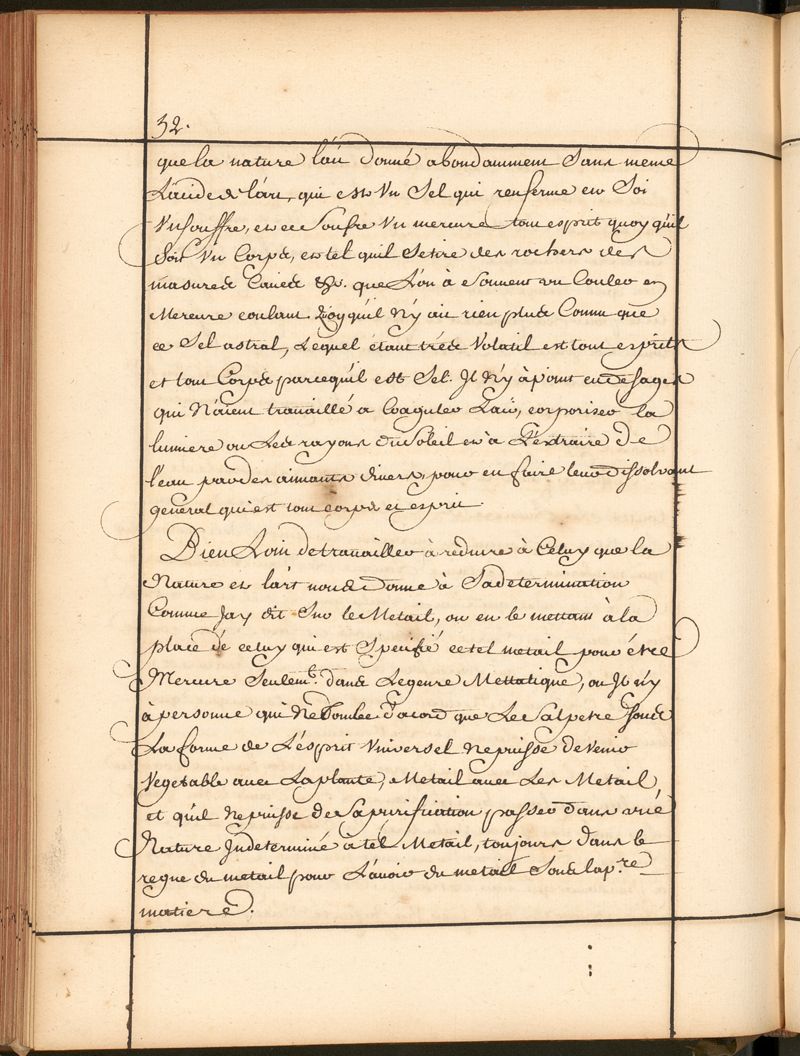 32.
que la nature l'a donné abondamment Sans meme
L'aide de l'art, qui est Un Sel qui renferme en Soi
Un Souffre, et ce Soufre Un mercure tout esprit quoy qu'il
Soit Un Corps, et tel qu'il Se tire des rochers des
masures Caves &c. que L'on à Souvent vu Couler en
Mercure coulant. Quoyqu'il N'y ait rien plus Connu que
ce Sel astral, Lequel étant trés Volatil est tout esprit
et tout Corps parcequ'il est Sel. Il N'y à point eu de Sages
qui N'aient travaillé a Coaguler L'air, corporiser la
lumiere ou Les rayons du Soleil et à L'extraire De
l'eau par des aimants divers, pour en faire leur dissolvant
general qui est tout corps et esprit.
Bien Loin de travailler à reduire à Celuy que la
Nature et l'art nous Donne à Sa determination
Comme J'ay dit Sur le Metail, ou en le mettant à la
place de celuy qui est Specifié ce tel metail pour étre
Mercure Seulem.t dans Le genre Mettatique, ou Il n'y
à personne qui Ne Tombe D'acord que Le Salpetre Sous
La forme de L'esprit Universel Ne puisse devenir
Vegetable avec La plante, Metail avec Les Metail,
et qu'il Ne puisse de Sa purification passer dans une
Nature Indeterminé à tel Metail, toujours dans le
regne du metail pour L'avoir du metail Sous la p.re
matiere.